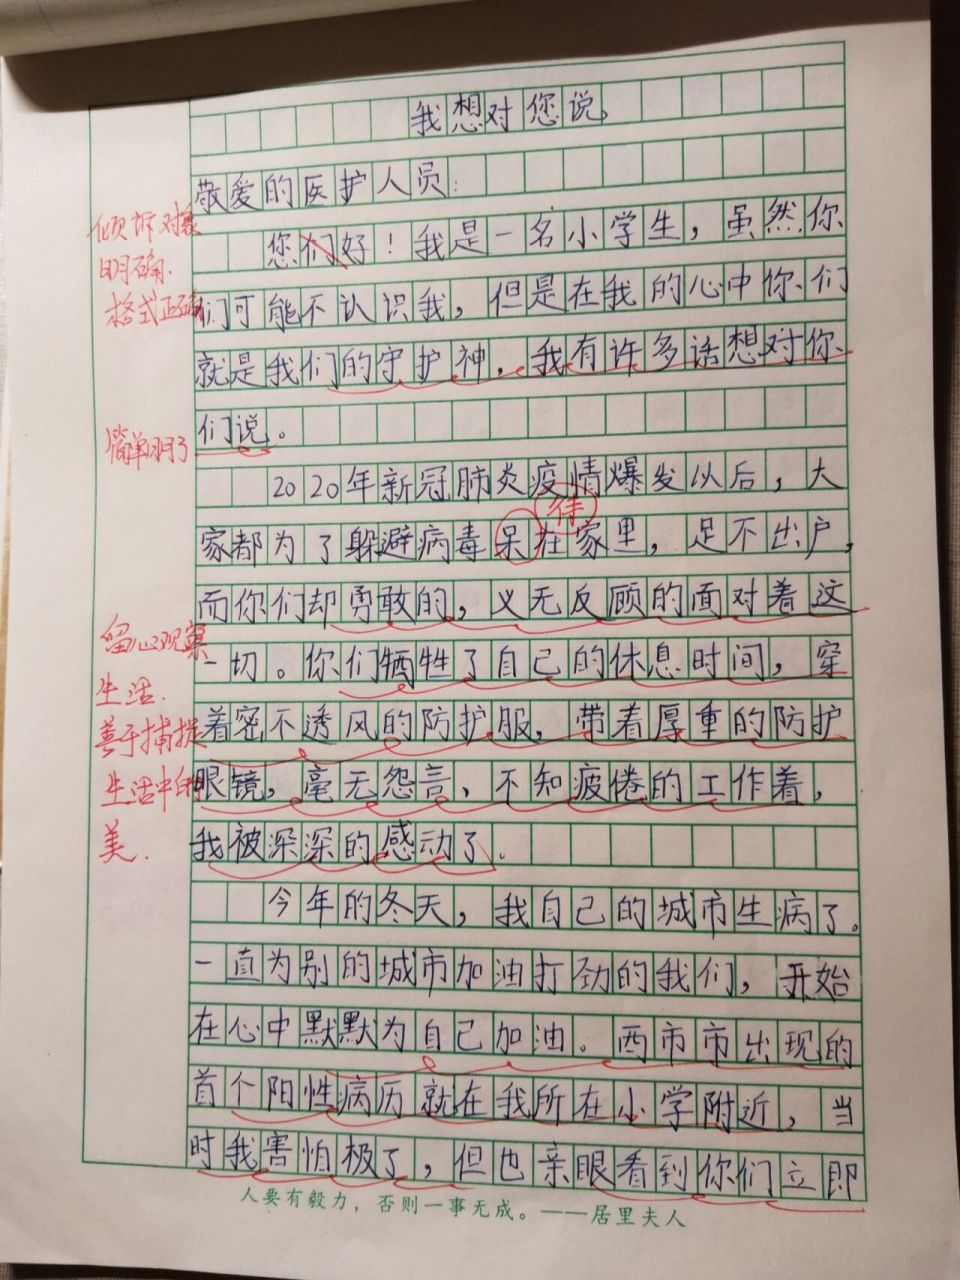 我想对您说
敬爱的医护人员：
倾诉对象
您们好！我是一名小学生，虽然你
明确.
们可能不认识我，但是在我的心中你们
格式正确
就是我们的守护神，我有许多话想对你
们说。
简单明了
2020年新冠肺炎疫情爆发以后，大
待
家都为了躲避病毒呆在家里，足不出户，
而你们却勇敢的，义无反顾的面对着这
留心观察
一切。你们牺牲了自己的休息时间，穿
生活.
着密不透风的防护服，带着厚重的防护
善于捕捉
眼镜，毫无怨言、不知疲倦的工作着，
生活中的
我被深深的感动了。
美.
今年的冬天，我自己的城市生病了。
一直为别的城市加油打劲的我们，开始
在心中默默为自己加油。西市市出现的
首个阳性病历就在我所在小学附近，当
时我害怕极了，但也亲眼看到你们立即
人要有毅力，否则一事无成。——居里夫人